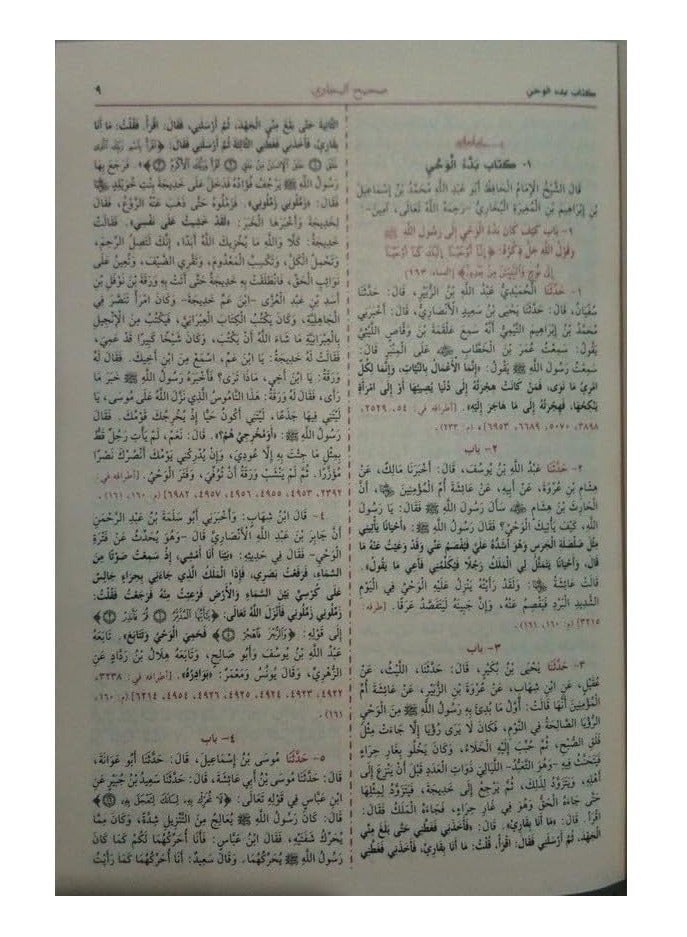 كتاب بدء الوحي
صحيح البخاري
٩
١- كتاب بَدْءُ الْوَحْي
قَالَ الشَّيْخُ الْإِمَامُ الْحَافِظُ أَبُو عَبْدِ اللَّهِ مُحَمَّدُ بْنُ إِسْمَاعِيلَ
بْنِ إِبْرَاهِيمَ بْنِ الْمُغِيرَةِ الْبُخَارِيُّ -رَحِمَهُ اللَّهُ تَعَالَى، آمِين-
١- بَابُ كَيْفَ كَانَ بَدْءُ الْوَحْيِ إِلَى رَسُولِ اللَّهِ ﷺ
وَقَوْلُ اللَّهِ جَلَّ ذِكْرُهُ: ﴿إِنَّا أَوْحَيْنَا إِلَيْكَ كَمَا أَوْحَيْنَا
إِلَى نُوحٍ وَالنَّبِيِّينَ مِنْ بَعْدِهِ﴾ [النساء: ١٦٣]
١- حَدَّثَنَا الْحُمَيْدِيُّ عَبْدُ اللَّهِ بْنُ الزُّبَيْرِ، قَالَ: حَدَّثَنَا
سُفْيَانُ، قَالَ: حَدَّثَنَا يَحْيَى بْنُ سَعِيدٍ الْأَنْصَارِيُّ، قَالَ: أَخْبَرَنِي
مُحَمَّدُ بْنُ إِبْرَاهِيمَ التَّيْمِيُّ أَنَّهُ سَمِعَ عَلْقَمَةَ بْنَ وَقَّاصٍ اللَّيْثِيَّ
يَقُولُ: سَمِعْتُ عُمَرَ بْنَ الْخَطَّابِ عَلَى الْمِنْبَرِ قَالَ:
سَمِعْتُ رَسُولَ اللَّهِ ﷺ يَقُولُ: «إِنَّمَا الْأَعْمَالُ بِالنِّيَّاتِ، وَإِنَّمَا لِكُلِّ
امْرِئٍ مَا نَوَى، فَمَنْ كَانَتْ هِجْرَتُهُ إِلَى دُنْيَا يُصِيبُهَا أَوْ إِلَى امْرَأَةٍ
يَنْكِحُهَا، فَهِجْرَتُهُ إِلَى مَا هَاجَرَ إِلَيْهِ». [أطرافه في: ٥٤، ٢٥٢٩،
٣٨٩٨، ٥٠٧٠، ٦٦٨٩، ٦٩٥٣]
٢- باب
٢- حَدَّثَنَا عَبْدُ اللَّهِ بْنُ يُوسُفَ، قَالَ: أَخْبَرَنَا مَالِكٌ، عَنْ
هِشَامِ بْنِ عُرْوَةَ، عَنْ أَبِيهِ، عَنْ عَائِشَةَ أُمِّ الْمُؤْمِنِينَ أَنَّ
الْحَارِثَ بْنَ هِشَامٍ سَأَلَ رَسُولَ اللَّهِ ﷺ فَقَالَ: يَا رَسُولَ
اللَّهِ، كَيْفَ يَأْتِيكَ الْوَحْيُ؟ فَقَالَ رَسُولُ اللَّهِ ﷺ: «أَحْيَانًا يَأْتِينِي
مِثْلَ صَلْصَلَةِ الْجَرَسِ وَهُوَ أَشَدُّهُ عَلَيَّ فَيُفْصَمُ عَنِّي وَقَدْ وَعَيْتُ عَنْهُ مَا
قَالَ، وَأَحْيَانًا يَتَمَثَّلُ لِي الْمَلَكُ رَجُلًا فَيُكَلِّمُنِي فَأَعِي مَا يَقُولُ».
قَالَتْ عَائِشَةُ: وَلَقَدْ رَأَيْتُهُ يَنْزِلُ عَلَيْهِ الْوَحْيُ فِي الْيَوْمِ
الشَّدِيدِ الْبَرْدِ فَيَفْصِمُ عَنْهُ، وَإِنَّ جَبِينَهُ لَيَتَفَصَّدُ عَرَقًا. [طرفه:
٣٢١٥]
٣- باب
٣- حَدَّثَنَا يَحْيَى بْنُ بُكَيْرٍ، قَالَ: حَدَّثَنَا، اللَّيْثُ، عَنْ
عُقَيْلٍ، عَنِ ابْنِ شِهَابٍ، عَنْ عُرْوَةَ بْنِ الزُّبَيْرِ، عَنْ عَائِشَةَ أُمِّ
الْمُؤْمِنِينَ أَنَّهَا قَالَتْ: أَوَّلُ مَا بُدِئَ بِهِ رَسُولُ اللَّهِ ﷺ مِنَ الْوَحْيِ
الرُّؤْيَا الصَّالِحَةُ فِي النَّوْمِ، فَكَانَ لَا يَرَى رُؤْيَا إِلَّا جَاءَتْ مِثْلَ
فَلَقِ الصُّبْحِ، ثُمَّ حُبِّبَ إِلَيْهِ الْخَلَاءُ، وَكَانَ يَخْلُو بِغَارِ حِرَاءٍ
فَيَتَحَنَّثُ فِيهِ -وَهُوَ التَّعَبُّدُ- اللَّيَالِيَ ذَوَاتِ الْعَدَدِ قَبْلَ أَنْ يَنْزِعَ إِلَى
أَهْلِهِ، وَيَتَزَوَّدُ لِذَلِكَ، ثُمَّ يَرْجِعُ إِلَى خَدِيجَةَ، فَيَتَزَوَّدُ لِمِثْلِهَا
حَتَّى جَاءَهُ الْحَقُّ وَهُوَ فِي غَارِ حِرَاءٍ، فَجَاءَهُ الْمَلَكُ فَقَالَ:
اقْرَأْ. قَالَ: «مَا أَنَا بِقَارِئٍ». قَالَ: «فَأَخَذَنِي فَغَطَّنِي حَتَّى بَلَغَ مِنِّي
الْجَهْدَ. ثُمَّ أَرْسَلَنِي فَقَالَ: اقْرَأْ. قُلْتُ: مَا أَنَا بِقَارِئٍ، فَأَخَذَنِي فَغَطَّنِي
الثَّانِيَةَ حَتَّى بَلَغَ مِنِّي الْجَهْدَ، ثُمَّ أَرْسَلَنِي، فَقَالَ: اقْرَأْ. فَقُلْتُ: مَا أَنَا
بِقَارِئٍ، فَأَخَذَنِي فَغَطَّنِي الثَّالِثَةَ ثُمَّ أَرْسَلَنِي فَقَالَ: ﴿اقْرَأْ بِاسْمِ رَبِّكَ الَّذِي
خَلَقَ خَلَقَ الْإِنْسَانَ مِنْ عَلَقٍ اقْرَأْ وَرَبُّكَ الْأَكْرَمُ﴾». فَرَجَعَ بِهَا
رَسُولُ اللَّهِ ﷺ يَرْجُفُ فُؤَادُهُ فَدَخَلَ عَلَى خَدِيجَةَ بِنْتِ خُوَيْلِدٍ
فَقَالَ: «زَمِّلُونِي زَمِّلُونِي». فَزَمَّلُوهُ حَتَّى ذَهَبَ عَنْهُ الرَّوْعُ، فَقَالَ
لِخَدِيجَةَ وَأَخْبَرَهَا الْخَبَرَ: «لَقَدْ خَشِيتُ عَلَى نَفْسِي». فَقَالَتْ
خَدِيجَةُ: كَلَّا وَاللَّهِ مَا يُخْزِيكَ اللَّهُ أَبَدًا، إِنَّكَ لَتَصِلُ الرَّحِمَ،
وَتَحْمِلُ الْكَلَّ، وَتَكْسِبُ الْمَعْدُومَ، وَتَقْرِي الضَّيْفَ، وَتُعِينُ عَلَى
نَوَائِبِ الْحَقِّ، فَانْطَلَقَتْ بِهِ خَدِيجَةُ حَتَّى أَتَتْ بِهِ وَرَقَةَ بْنَ نَوْفَلِ بْنِ
أَسَدِ بْنِ عَبْدِ الْعُزَّى -ابْنَ عَمِّ خَدِيجَةَ- وَكَانَ امْرَأً تَنَصَّرَ فِي
الْجَاهِلِيَّةِ، وَكَانَ يَكْتُبُ الْكِتَابَ الْعِبْرَانِيَّ، فَيَكْتُبُ مِنَ الْإِنْجِيلِ
بِالْعِبْرَانِيَّةِ مَا شَاءَ اللَّهُ أَنْ يَكْتُبَ، وَكَانَ شَيْخًا كَبِيرًا قَدْ عَمِيَ،
فَقَالَتْ لَهُ خَدِيجَةُ: يَا ابْنَ عَمِّ، اسْمَعْ مِنَ ابْنِ أَخِيكَ. فَقَالَ لَهُ
وَرَقَةُ: يَا ابْنَ أَخِي، مَاذَا تَرَى؟ فَأَخْبَرَهُ رَسُولُ اللَّهِ ﷺ خَبَرَ مَا
رَأَى، فَقَالَ لَهُ وَرَقَةُ: هَذَا النَّامُوسُ الَّذِي نَزَّلَ اللَّهُ عَلَى مُوسَى، يَا
لَيْتَنِي فِيهَا جَذَعًا، لَيْتَنِي أَكُونُ حَيًّا إِذْ يُخْرِجُكَ قَوْمُكَ. فَقَالَ
رَسُولُ اللَّهِ ﷺ: «أَوَمُخْرِجِيَّ هُمْ؟». قَالَ: نَعَمْ، لَمْ يَأْتِ رَجُلٌ قَطُّ
بِمِثْلِ مَا جِئْتَ بِهِ إِلَّا عُودِيَ، وَإِنْ يُدْرِكْنِي يَوْمُكَ أَنْصُرْكَ نَصْرًا
مُؤَزَّرًا. ثُمَّ لَمْ يَنْشَبْ وَرَقَةُ أَنْ تُوُفِّيَ، وَفَتَرَ الْوَحْيُ. [أطرافه في:
٣٣٩٢، ٤٩٥٣، ٤٩٥٥، ٤٩٥٦، ٤٩٥٧، ٦٩٨٢]
٤- قَالَ ابْنُ شِهَابٍ: وَأَخْبَرَنِي أَبُو سَلَمَةَ بْنُ عَبْدِ الرَّحْمَنِ
أَنَّ جَابِرَ بْنَ عَبْدِ اللَّهِ الْأَنْصَارِيَّ قَالَ -وَهُوَ يُحَدِّثُ عَنْ فَتْرَةِ
الْوَحْيِ- فَقَالَ فِي حَدِيثِهِ: «بَيْنَا أَنَا أَمْشِي، إِذْ سَمِعْتُ صَوْتًا مِنَ
السَّمَاءِ، فَرَفَعْتُ بَصَرِي، فَإِذَا الْمَلَكُ الَّذِي جَاءَنِي بِحِرَاءٍ جَالِسٌ
عَلَى كُرْسِيٍّ بَيْنَ السَّمَاءِ وَالْأَرْضِ فَرُعِبْتُ مِنْهُ فَرَجَعْتُ فَقُلْتُ:
زَمِّلُونِي زَمِّلُونِي فَأَنْزَلَ اللَّهُ تَعَالَى: ﴿يَا أَيُّهَا الْمُدَّثِّرُ قُمْ فَأَنْذِرْ﴾
إِلَى قَوْلِهِ: ﴿وَالرُّجْزَ فَاهْجُرْ﴾ فَحَمِيَ الْوَحْيُ وَتَتَابَعَ». تَابَعَهُ
عَبْدُ اللَّهِ بْنُ يُوسُفَ وَأَبُو صَالِحٍ، وَتَابَعَهُ هِلَالُ بْنُ رَدَّادٍ عَنِ
الزُّهْرِيِّ، وَقَالَ يُونُسُ وَمَعْمَرٌ: «بَوَادِرُهُ». [أطرافه في: ٣٢٣٨،
٤٩٢٢، ٤٩٢٣، ٤٩٢٤، ٤٩٢٥، ٤٩٢٦، ٤٩٥٤، ٦٢١٤] [م: ١٦٠،
١٦١]
٤- باب
٥- حَدَّثَنَا مُوسَى بْنُ إِسْمَاعِيلَ، قَالَ: حَدَّثَنَا أَبُو عَوَانَةَ،
قَالَ: حَدَّثَنَا مُوسَى بْنُ أَبِي عَائِشَةَ، قَالَ: حَدَّثَنَا سَعِيدُ بْنُ جُبَيْرٍ عَنِ
ابْنِ عَبَّاسٍ فِي قَوْلِهِ تَعَالَى: ﴿لَا تُحَرِّكْ بِهِ لِسَانَكَ لِتَعْجَلَ بِهِ﴾
قَالَ: كَانَ رَسُولُ اللَّهِ ﷺ يُعَالِجُ مِنَ التَّنْزِيلِ شِدَّةً، وَكَانَ مِمَّا
يُحَرِّكُ شَفَتَيْهِ، فَقَالَ ابْنُ عَبَّاسٍ: فَأَنَا أُحَرِّكُهُمَا لَكُمْ كَمَا كَانَ
رَسُولُ اللَّهِ ﷺ يُحَرِّكُهُمَا. وَقَالَ سَعِيدٌ: أَنَا أُحَرِّكُهُمَا كَمَا رَأَيْتُ